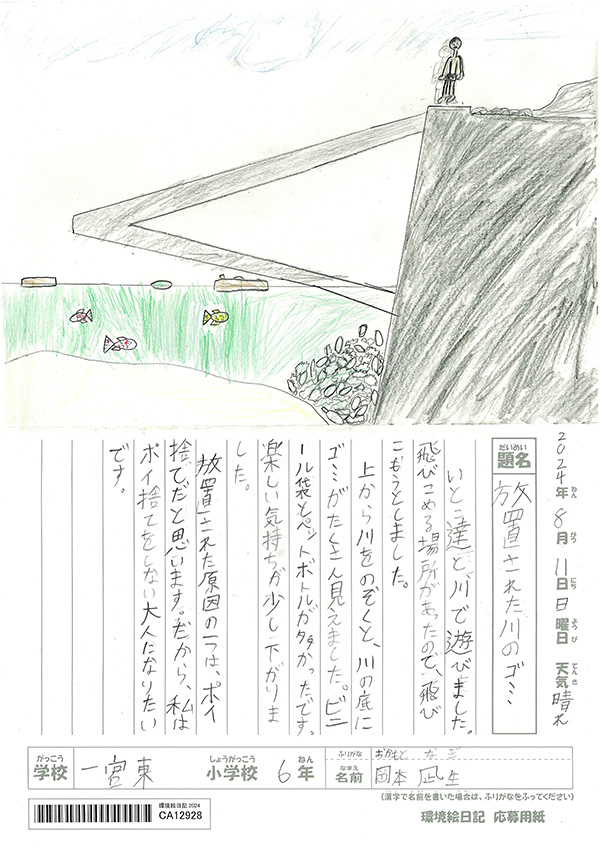 2024年ねん 8月がつ 11日にち 日曜日ようび 天気てんき 晴れ
だいめい
題名 放置された川のゴミ
いとこ達と川で遊びました。
飛びこめる場所があったので、飛び
こもうとしました。
上から川をのぞくと、川の底に
ゴミがたくさん見えました。ビニ
ール袋とペットボトルが多かったです。
楽しい気持ちが少し下がりま
した。
放置された原因の一つは、ポイ
捨てだと思います。だから、私は
ポイ捨てをしない大人になりたい
です。
がっこう しょうがっこう ねん
学校 一宮東 小学校 6年
ふりがな おかもと なぎ
なまえ
名前 岡本 凪生
(漢字で名前を書いた場合は、ふりがなをふってください)
環境絵日記 2024
CA12928
環境絵日記 応募用紙